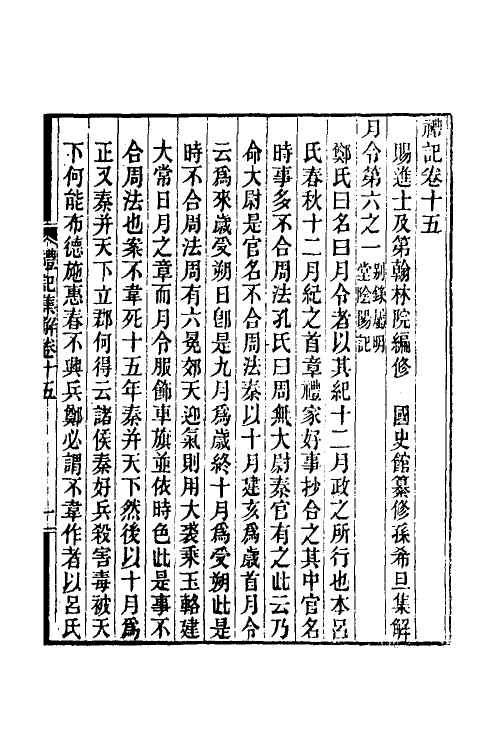 禮記卷十五
賜進士及第翰林院編修　國史館纂修孫希旦集解
月令第六之一別錄屬明堂陰陽記
鄭氏曰名曰月令者以其紀十二月政之所行也本呂
氏春秋十二月紀之首章禮家好事抄合之其中官名
時事多不合周法孔氏曰周無大尉秦官有之此云乃
命大尉是官名不合周法秦以十月建亥爲歲首月令
云爲來歲受朔日卽是九月爲歲終十月爲受朔此是
時不合周法周有六冕郊天迎氣則用大裘乘玉輅建
大常日月之章而月令服飾車旗並依時色此是事不
合周法也案不韋死十五年秦并天下然後以十月爲
正又秦并天下立郡何得云諸侯秦好兵殺害毒被天
下何能布德施惠春不興兵鄭必謂不韋作者以呂氏
禮記集解卷十五
一